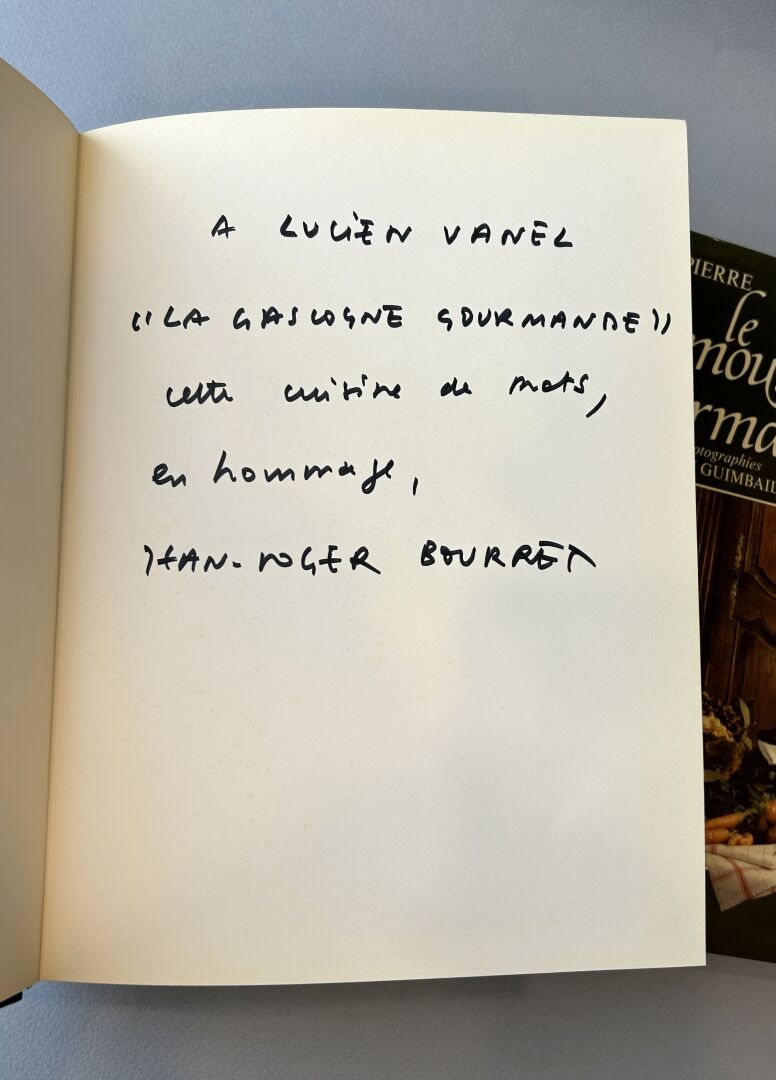 A LUCIEN VANEL
"LA GASCOGNE GOURMANDE"
cette cuisine de mots,
en hommage,
JEAN-ROGER BOURREC
PIERRE
le
GUIMBAIL